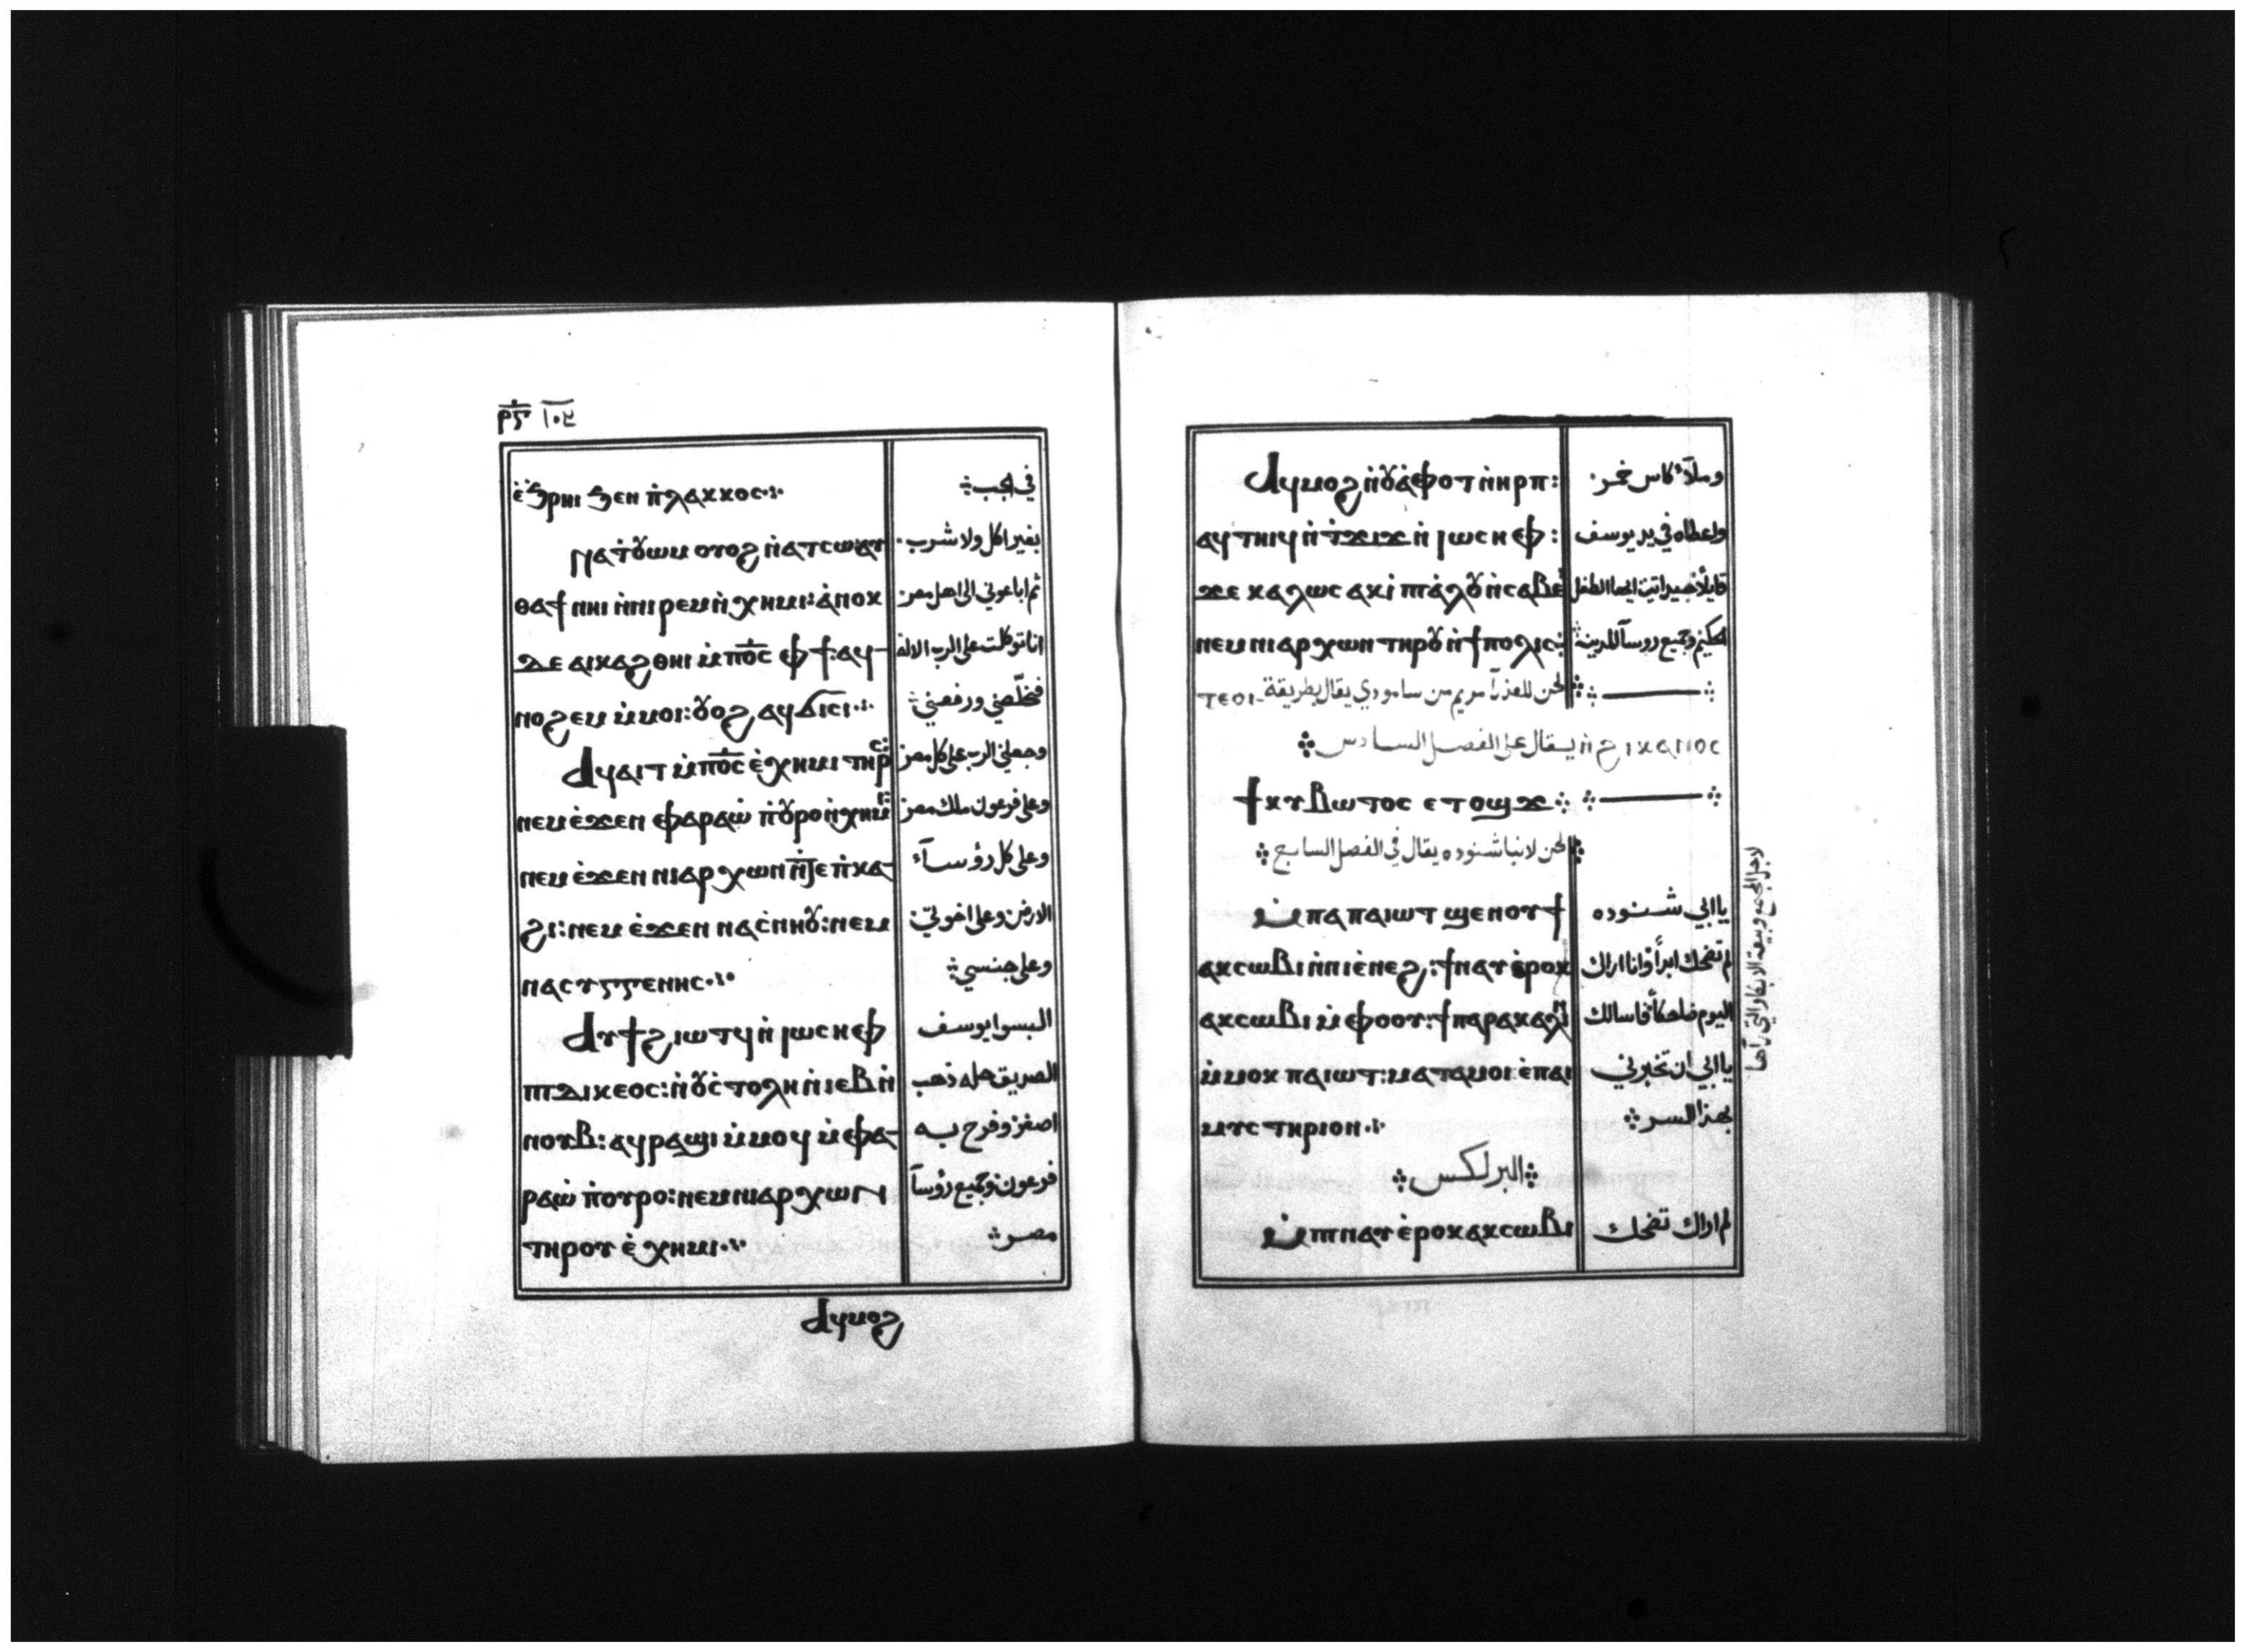 ⲣ̅ϥ̅ ١٠٤
ⲉ̀ϧⲣⲏⲓ ϧⲉⲛ ⲡ̀ⲗⲁⲕⲕⲟⲥ في الجب
ⲛⲁⲧⲟⲩⲱⲙ ⲟⲩⲟϩ ⲛ̀ⲁⲧⲥⲱ بغير اكل ولا شرب
ⲑⲁϯ ⲛⲏⲓ ⲛ̀ⲛⲓⲣⲉⲙⲛ̀ⲭⲏⲙⲓ: ⲁ̀ⲛⲟⲕ ثم اباعوني الى اهل مصر
ⲇⲉ ⲁⲓⲕⲁϩⲑⲏⲓ ⲙ̀ⲡ⳪ ⲫϯ: ⲁϥ- انا توكلت على الرب الاله
ⲛⲟϩⲉⲙ ⲙ̀ⲙⲟⲓ: ⲟⲩⲟϩ ⲁϥϭⲓⲥⲓ فخلّصني ورفعني
ⲁϥⲁⲓⲧ ⲙ̀ⲡ⳪ ⲉ̀ⲭⲏⲙⲓ ⲧⲏⲣⲥ وجعلني الرب على كل مصر
ⲛⲉⲙ ⲉ̀ϫⲉⲛ ⲫⲁⲣⲁⲱ̀ ⲡ̀ⲟⲩⲣⲟ ⲛ̀ⲭⲏⲙⲓ وعلى فرعون ملك مصر
ⲛⲉⲙ ⲉ̀ϫⲉⲛ ⲛⲓⲁⲣⲭⲱⲛ ⲛ̀ⲧⲉ ⲡ̀ⲕⲁ- وعلى كل رؤسآء
ϩⲓ: ⲛⲉⲙ ⲉ̀ϫⲉⲛ ⲛⲁⲥ̀ⲛⲏⲟⲩ: ⲛⲉⲙ الارض وعلى اخوتي
ⲛⲁⲥⲩⲅⲅⲉⲛⲏⲥ وعلى جنسي
ⲁⲩϯϩⲓⲱⲧϥ ⲛ̀ⲓⲱⲥⲏⲫ البسوا يوسف
ⲡⲓⲇⲓⲕⲉⲟⲥ: ⲛ̀ⲟⲩⲥ̀ⲧⲟⲗⲏ ⲛ̀ⲓⲉⲃ ⲛ̀ الصديق حله ذهب
ⲛⲟⲩⲃ: ⲁϥⲣⲁϣⲓ ⲙ̀ⲙⲟϥ ⲛ̀ⲫⲁ- اصفر وفرح به
ⲣⲁⲱ̀ ⲡ̀ⲟⲩⲣⲟ: ⲛⲉⲙ ⲛⲓⲁⲣⲭⲱⲛ فرعون وجميع رؤسآ
ⲧⲏⲣⲟⲩ ⲉ̀ⲭⲏⲙⲓ مصر
ⲁϥⲙⲟϩ
ⲁϥⲙⲟϩ ⲛ̀ⲟⲩⲁ̀ⲫⲟⲧ ⲛ̀ⲏⲣⲡ: وملآء كاس خمر
ⲁϥⲧⲏⲓϥ ⲛ̀ⲧϫⲓϫ ⲛ̀ⲓⲱⲥⲏⲫ: واعطاه في يد يوسف
ϫⲉ ⲕⲁⲗⲱⲥ ⲁⲕⲓ̀ ⲡⲓⲁ̀ⲗⲟⲩ ⲛ̀ⲥⲁⲃⲉ̀ قايلاً جيداً اتيت ايها الطفل
ⲛⲉⲙ ⲛⲓⲁⲣⲭⲱⲛ ⲧⲏⲣⲟⲩ ⲛ̀ϯⲡⲟⲗⲓⲥ الحكيم وجميع روسآ المدينة
لحن للعذرآ مريم من سامودي يقال بطريقة ⲧⲉⲟⲓ-
ⲛ̀ϩⲓⲕⲁⲛⲟⲥ يقال على الفصل السادس
ϯⲕⲩⲃⲱⲧⲟⲥ ⲉⲧⲟϣϫ
لحن لانبا شنوده يقال في الفصل السابع
ⲙ̀ⲡⲁⲡⲁⲓⲱⲧ ϣⲉⲛⲟⲩϯ يا ابي شنوده
ⲁⲕⲥⲱⲃⲓ ⲛ̀ⲡⲓⲉ̀ⲛⲉϩ: ϯⲛⲁⲩ ⲉ̀ⲣⲟⲕ لم تضحك ابداً وانا اراك
ⲁⲕⲥⲱⲃⲓ ⲙ̀ⲫⲟⲟⲩ: ϯⲡⲁⲣⲁⲕⲁⲗⲓ اليوم ضاحكاً فاسالك
ⲙ̀ⲙⲟⲕ ⲡⲁⲓⲱⲧ: ⲙⲁⲧⲁⲙⲟⲓ ⲉ̀ⲡⲁⲓ يا ابي ان تخبرني
ⲙⲩⲥⲧⲏⲣⲓⲟⲛ بهذا السر
البرلكس
ⲙ̀ⲡⲓⲛⲁⲩ ⲉ̀ⲣⲟⲕ ⲁⲕⲥⲱⲃⲓ لم اراك تضحك
لاجل المجمع وبيعة الابكار التي رآها